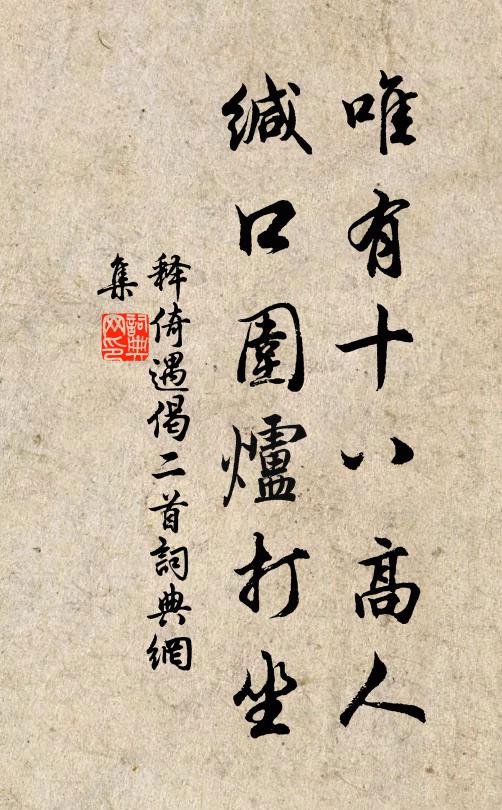 唯有十八高人
缄口圍爐打坐
释倚遇偈二首詞典網
集
詞典
网印